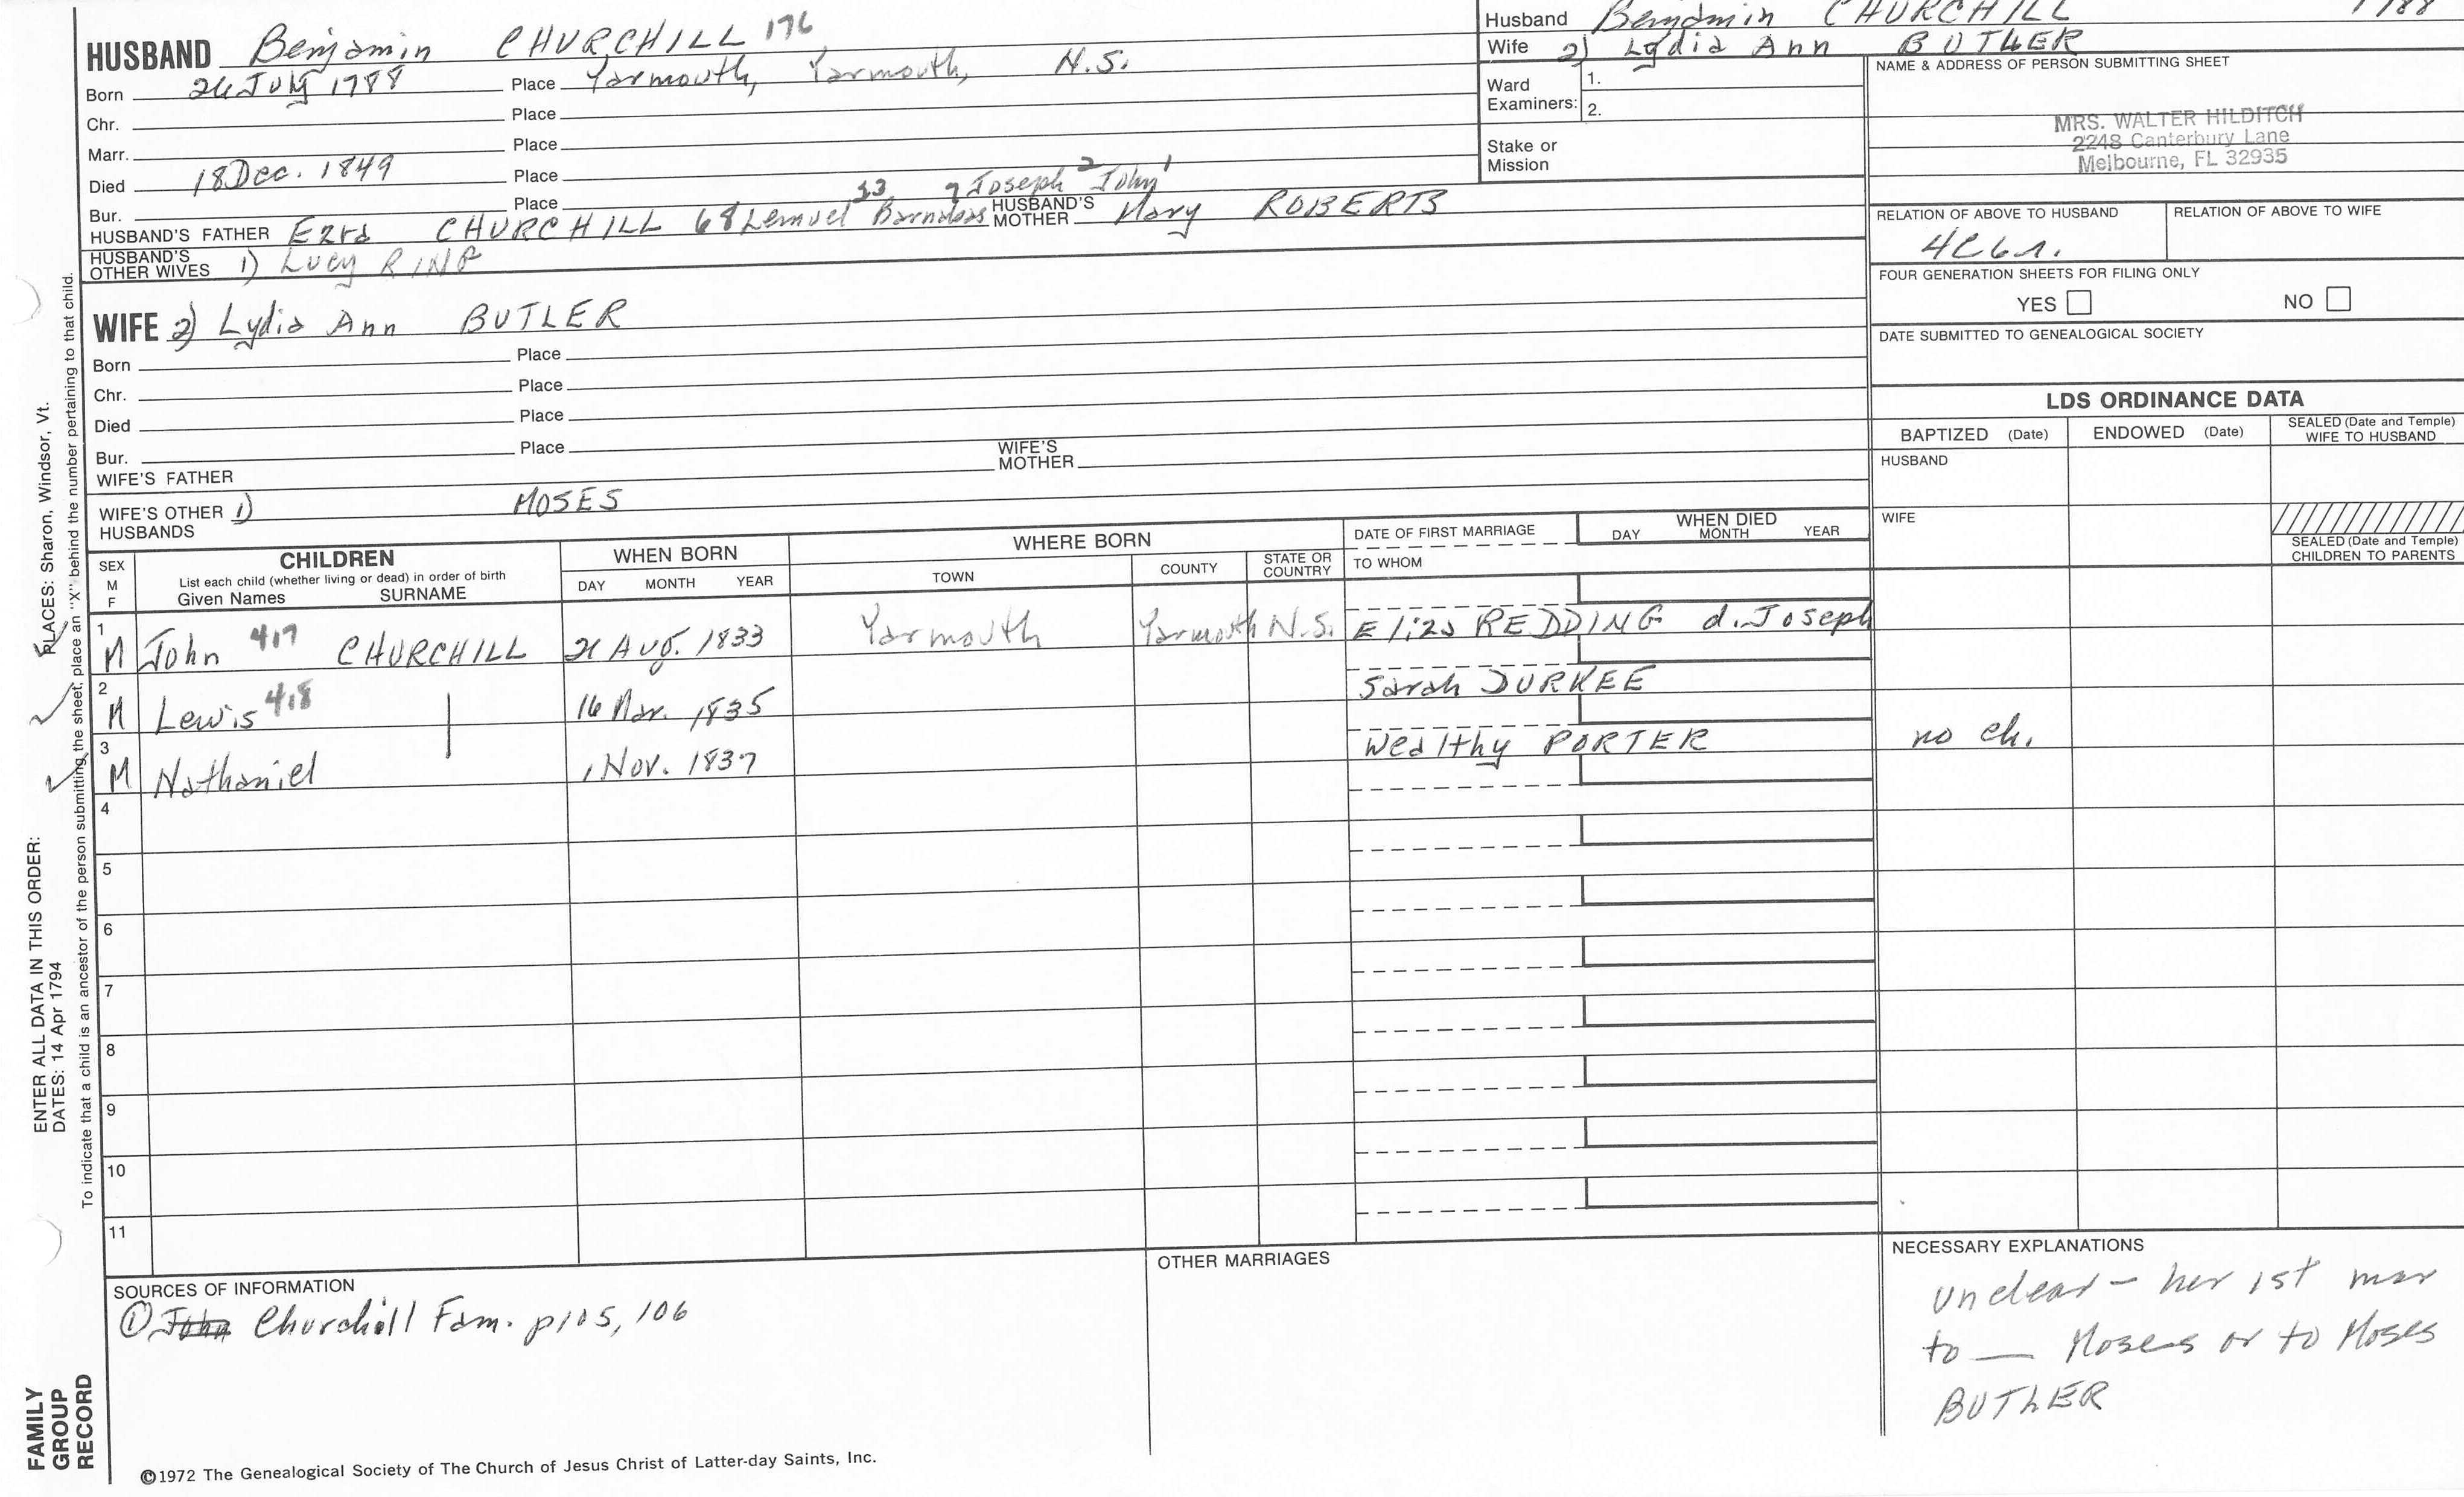 HUSBAND Benjamin CHURCHILL 176
Born 26 July 1788 Place Yarmouth, Yarmouth, N.S.
Chr. Place
Marr. Place
Died 18 Dec. 1849 Place
Bur. Place
HUSBAND'S FATHER Ezra CHURCHILL 68 Lemuel Barnabas Joseph 2 John 1 HUSBAND'S MOTHER Mary ROBERTS
HUSBAND'S OTHER WIVES 1) Lucy RING
WIFE 2) Lydia Ann BUTLER
Born Place
Chr. Place
Died Place
Bur. Place
WIFE'S FATHER WIFE'S MOTHER
WIFE'S OTHER HUSBANDS 1) MOSES
Husband Benjamin CHURCHILL 1788
Wife 2) Lydia Ann BUTLER
Ward Examiners: 1.
2.
Stake or Mission
NAME & ADDRESS OF PERSON SUBMITTING SHEET
MRS. WALTER HILDITCH
2248 Canterbury Lane
Melbourne, FL 32935
RELATION OF ABOVE TO HUSBAND RELATION OF ABOVE TO WIFE
4C6r.
FOUR GENERATION SHEETS FOR FILING ONLY
YES NO
DATE SUBMITTED TO GENEALOGICAL SOCIETY
LDS ORDINANCE DATA
BAPTIZED (Date) ENDOWED (Date) SEALED (Date and Temple) WIFE TO HUSBAND
HUSBAND
WIFE
SEALED (Date and Temple) CHILDREN TO PARENTS
SEX M F CHILDREN List each child (whether living or dead) in order of birth Given Names SURNAME
WHEN BORN DAY MONTH YEAR
WHERE BORN TOWN COUNTY STATE OR COUNTRY
DATE OF FIRST MARRIAGE TO WHOM
WHEN DIED DAY MONTH YEAR
1 M John 417 CHURCHILL 21 Aug. 1833 Yarmouth Yarmouth N.S. Eliza REDDING d. Joseph
2 M Lewis 418 16 Mar. 1835 Sarah DURKEE
3 M Nathaniel 1 Nov. 1837 Wealthy PORTER no ch.
4
5
6
7
8
9
10
11
SOURCES OF INFORMATION
① John Churchill Fam. p105, 106
OTHER MARRIAGES
NECESSARY EXPLANATIONS
unclear - her 1st mar
to — Moses or to Moses
BUTLER
©1972 The Genealogical Society of The Church of Jesus Christ of Latter-day Saints, Inc.
FAMILY GROUP RECORD
ENTER ALL DATA IN THIS ORDER:
DATES: 14 Apr 1794
PLACES: Sharon, Windsor, Vt.
To indicate that a child is an ancestor of the person submitting the sheet, place an "X" behind the number pertaining to that child.